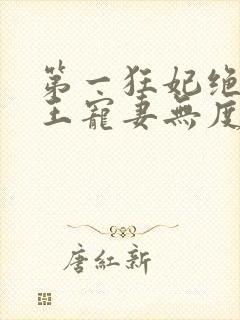 第一狂妃绝
王寵妻無度
唐紅新